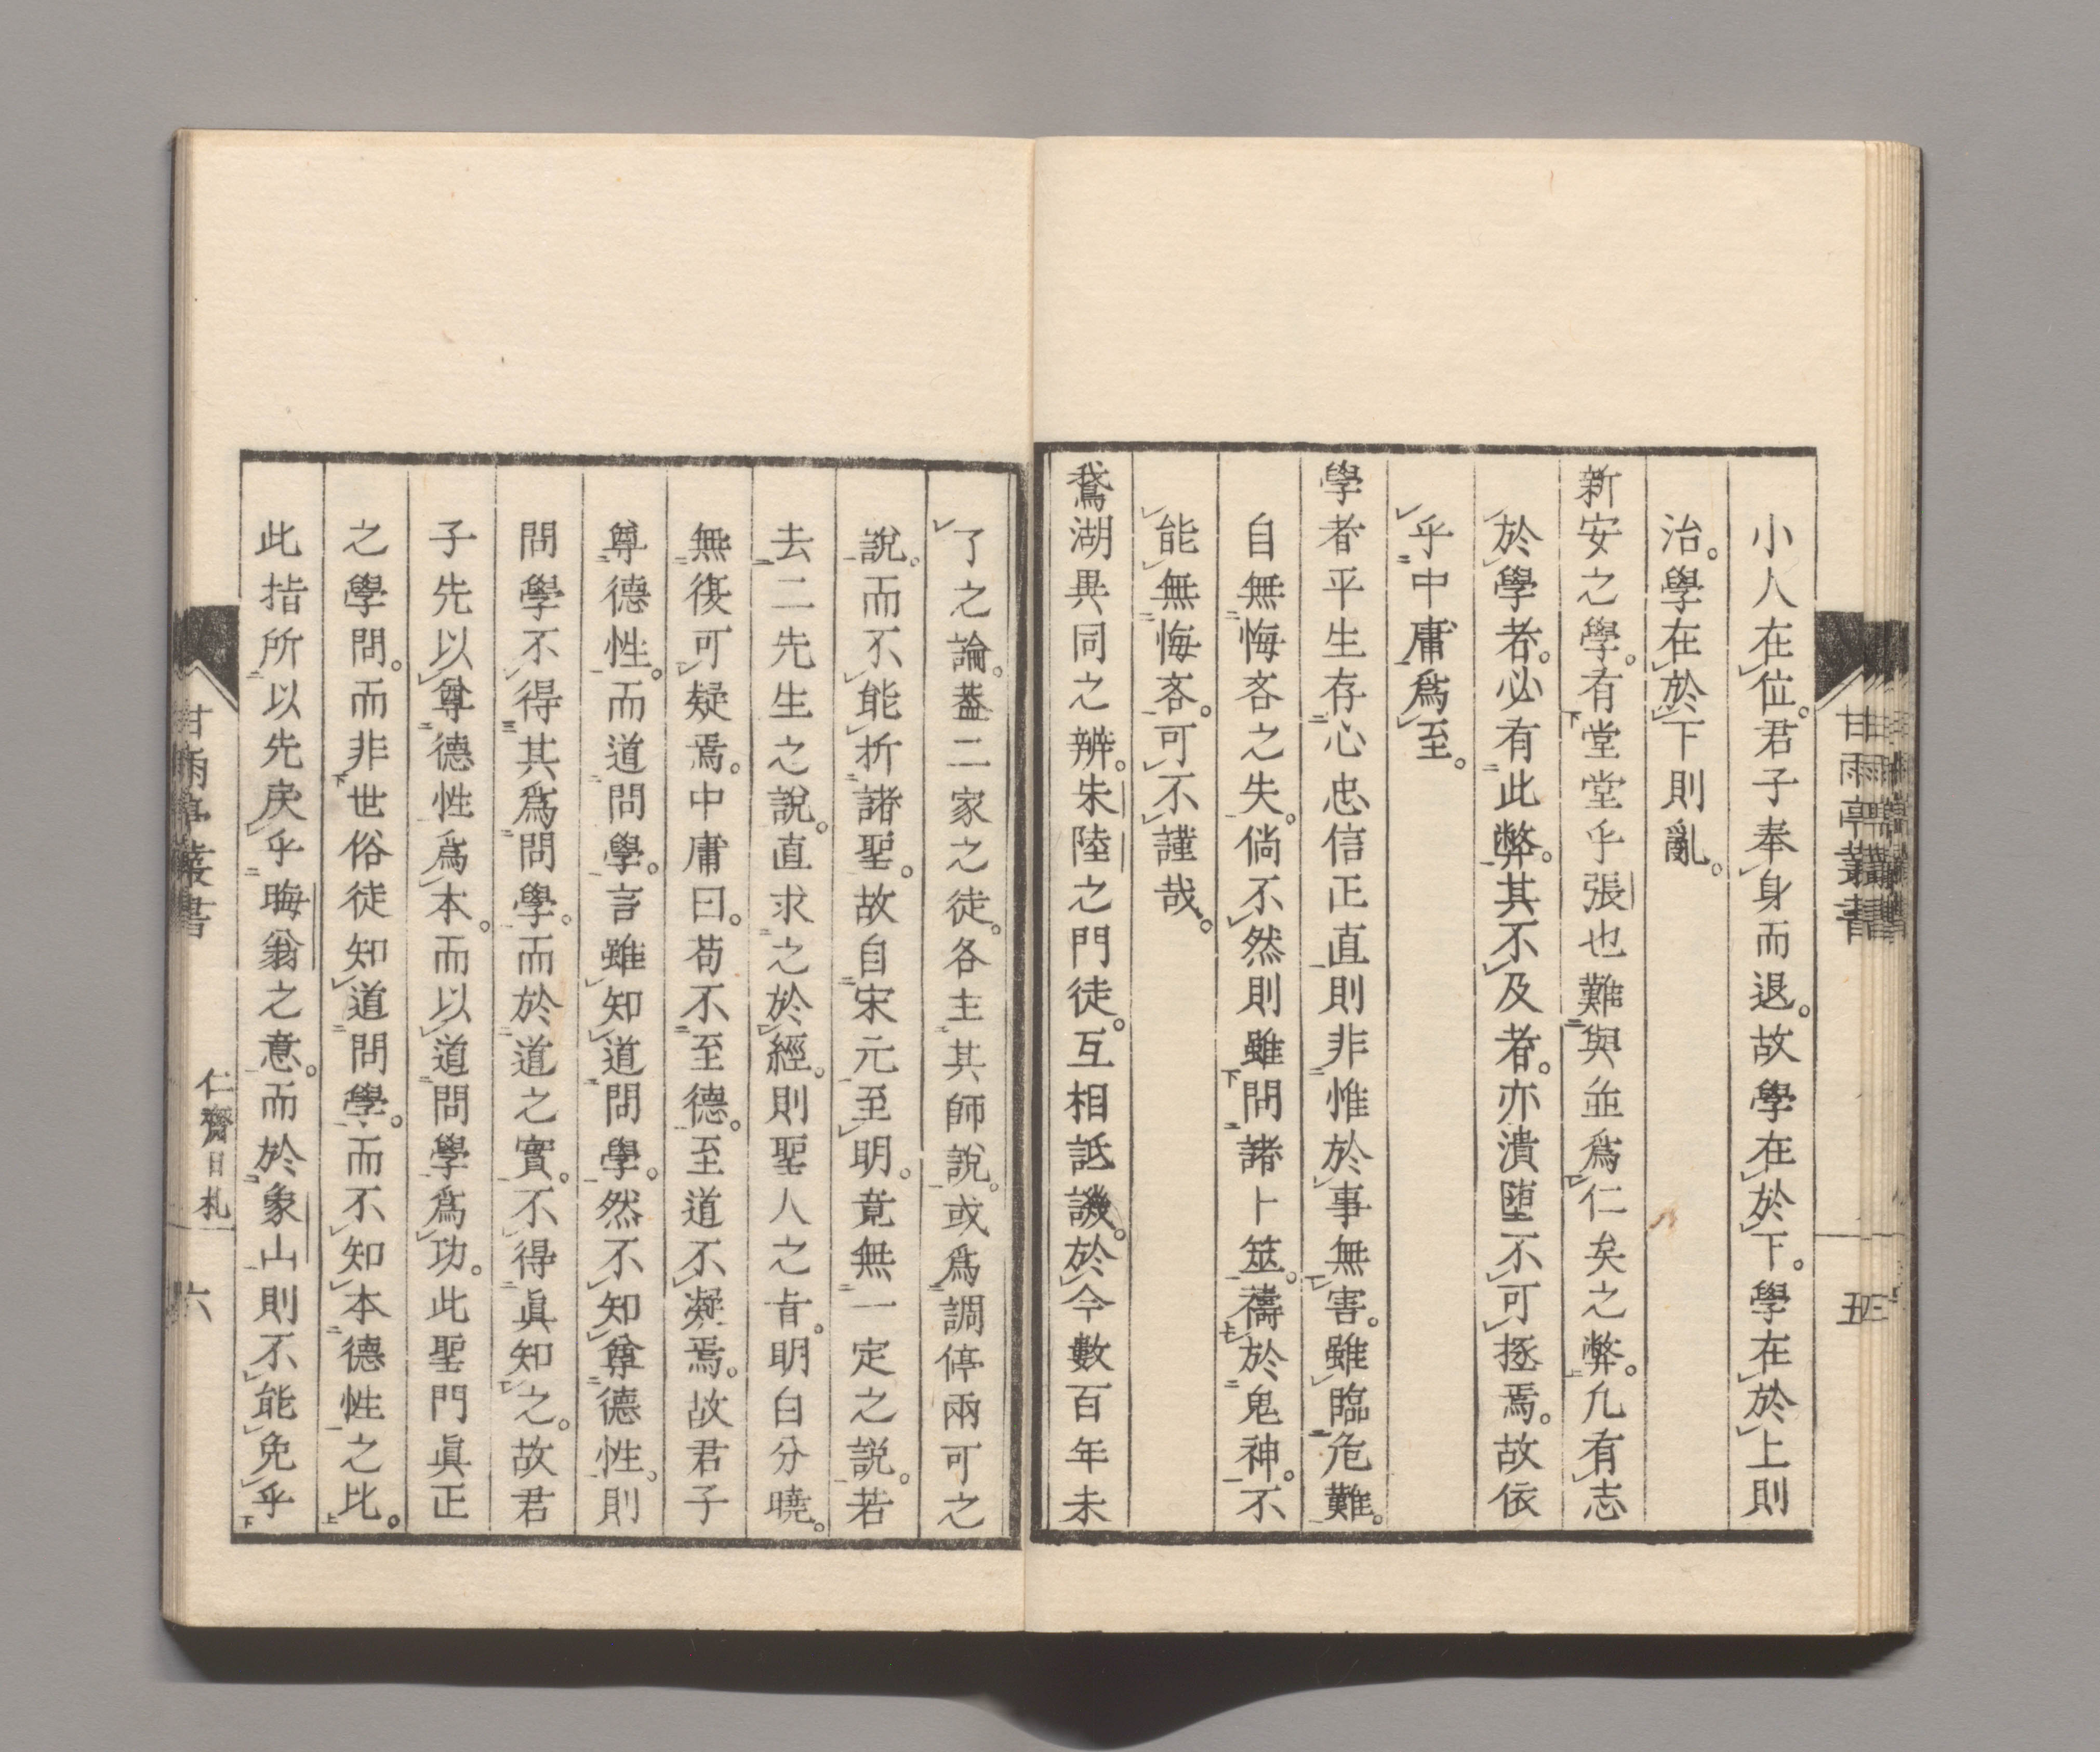 小人在位。君子奉身而退。故學在於下。學在於上則
治。學在於下則亂。
新安之學。有堂堂乎張也難與並爲仁矣之弊。凢有志
於學者。必有此弊。其不及者。亦潰堕不可拯焉。故依
乎中庸爲至。
學者平生存心忠信正直則非惟於事無害。雖臨危難。
自無悔吝之失。倘不然則雖問諸卜筮。禱於鬼神。不
能無悔吝。可不謹哉。
鵞湖異同之辨。朱陸之門徒。互相詆譏。於今數百年未
了之論。葢二家之徒。各主其師說。或爲調停兩可之
說。而不能折諸聖。故自宋元至明。竟無一定之説。若
去二先生之說。直求之於經。則聖人之㫖。明白分曉。
無復可疑焉。中庸曰。苟不至德。至道不凝焉。故君子
尊德性。而道問學。言雖知道問學。然不知尊德性。則
問學不得其爲問學。而於道之實。不得眞知之。故君
子先以尊德性爲本。而以道問學爲功。此聖門眞正
之學問。而非世俗徒知道問學。而不知本德性之比。
此指所以先戾乎晦翁之意。而於象山則不能免乎
甘雨亭叢書
仁齋日札
六
甘雨亭叢書
五